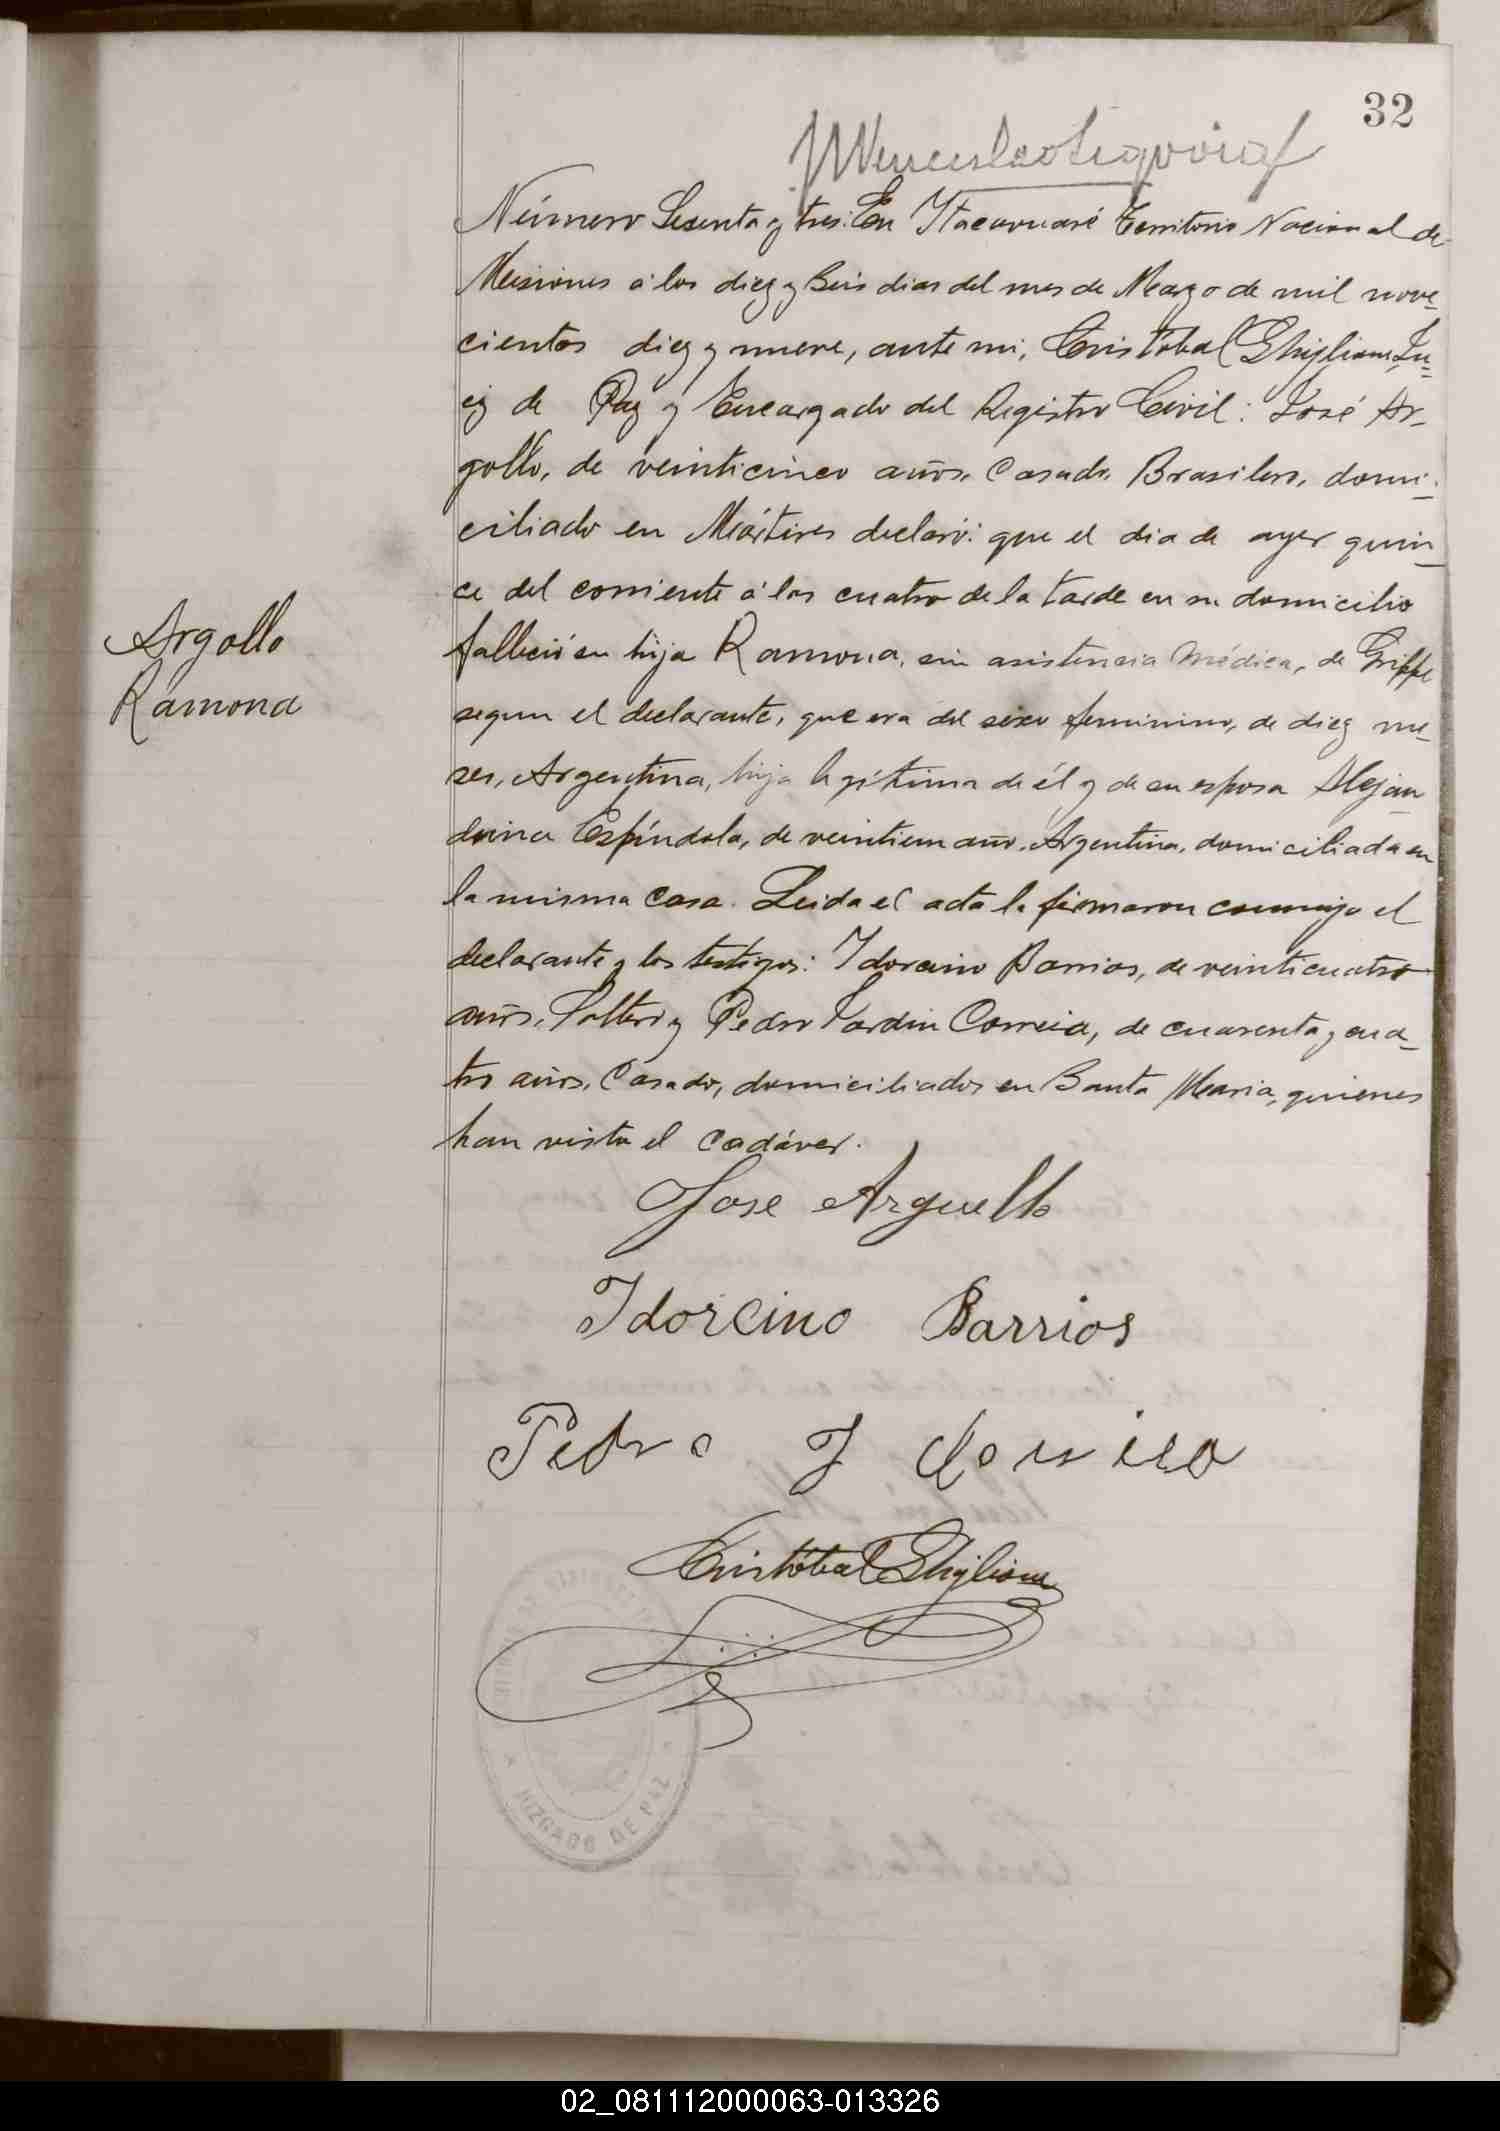 32
Número Sesenta y tres: En Itacaruaré Territorio Nacional de
Misiones á los diez y Seis dias del mes de Marzo de mil nove-
cientos diez y nueve, ante mi, Cristobal Ghiglione, Ju-
ez de Paz y Encargado del Registro Civil: José Ar-
gollo, de veinticinco años, Casado, Brasilero, domi-
ciliado en Mártires declaró: que el dia de ayer quin-
ce del corriente á las cuatro de la tarde en su domicilio
falleció su hija Ramona, sin asistencia Médica, de Grippe
segun el declarante, que era del sexo feminino, de diez me-
ses, Argentina, hija legítima de él y de su esposa Alejan
drina Espíndola, de veintiun año, Argentina, domiciliada en
la misma casa. Leida el acta la firmaron conmigo el
declarante y los testigos: Idorcino Barrios, de veinticuatro
años, Soltero y Pedro Jardin Correia, de cuarenta y cua-
tro años, Casado, domiciliados en Santa Maria, quienes
han visto el cadáver.
Argollo
Ramona
Jose Arguello
Idorcino Barrios
Pedro J Correia
Cristóbal Ghiglione
JUZGADO DE PAZ
02_081112000063-013326